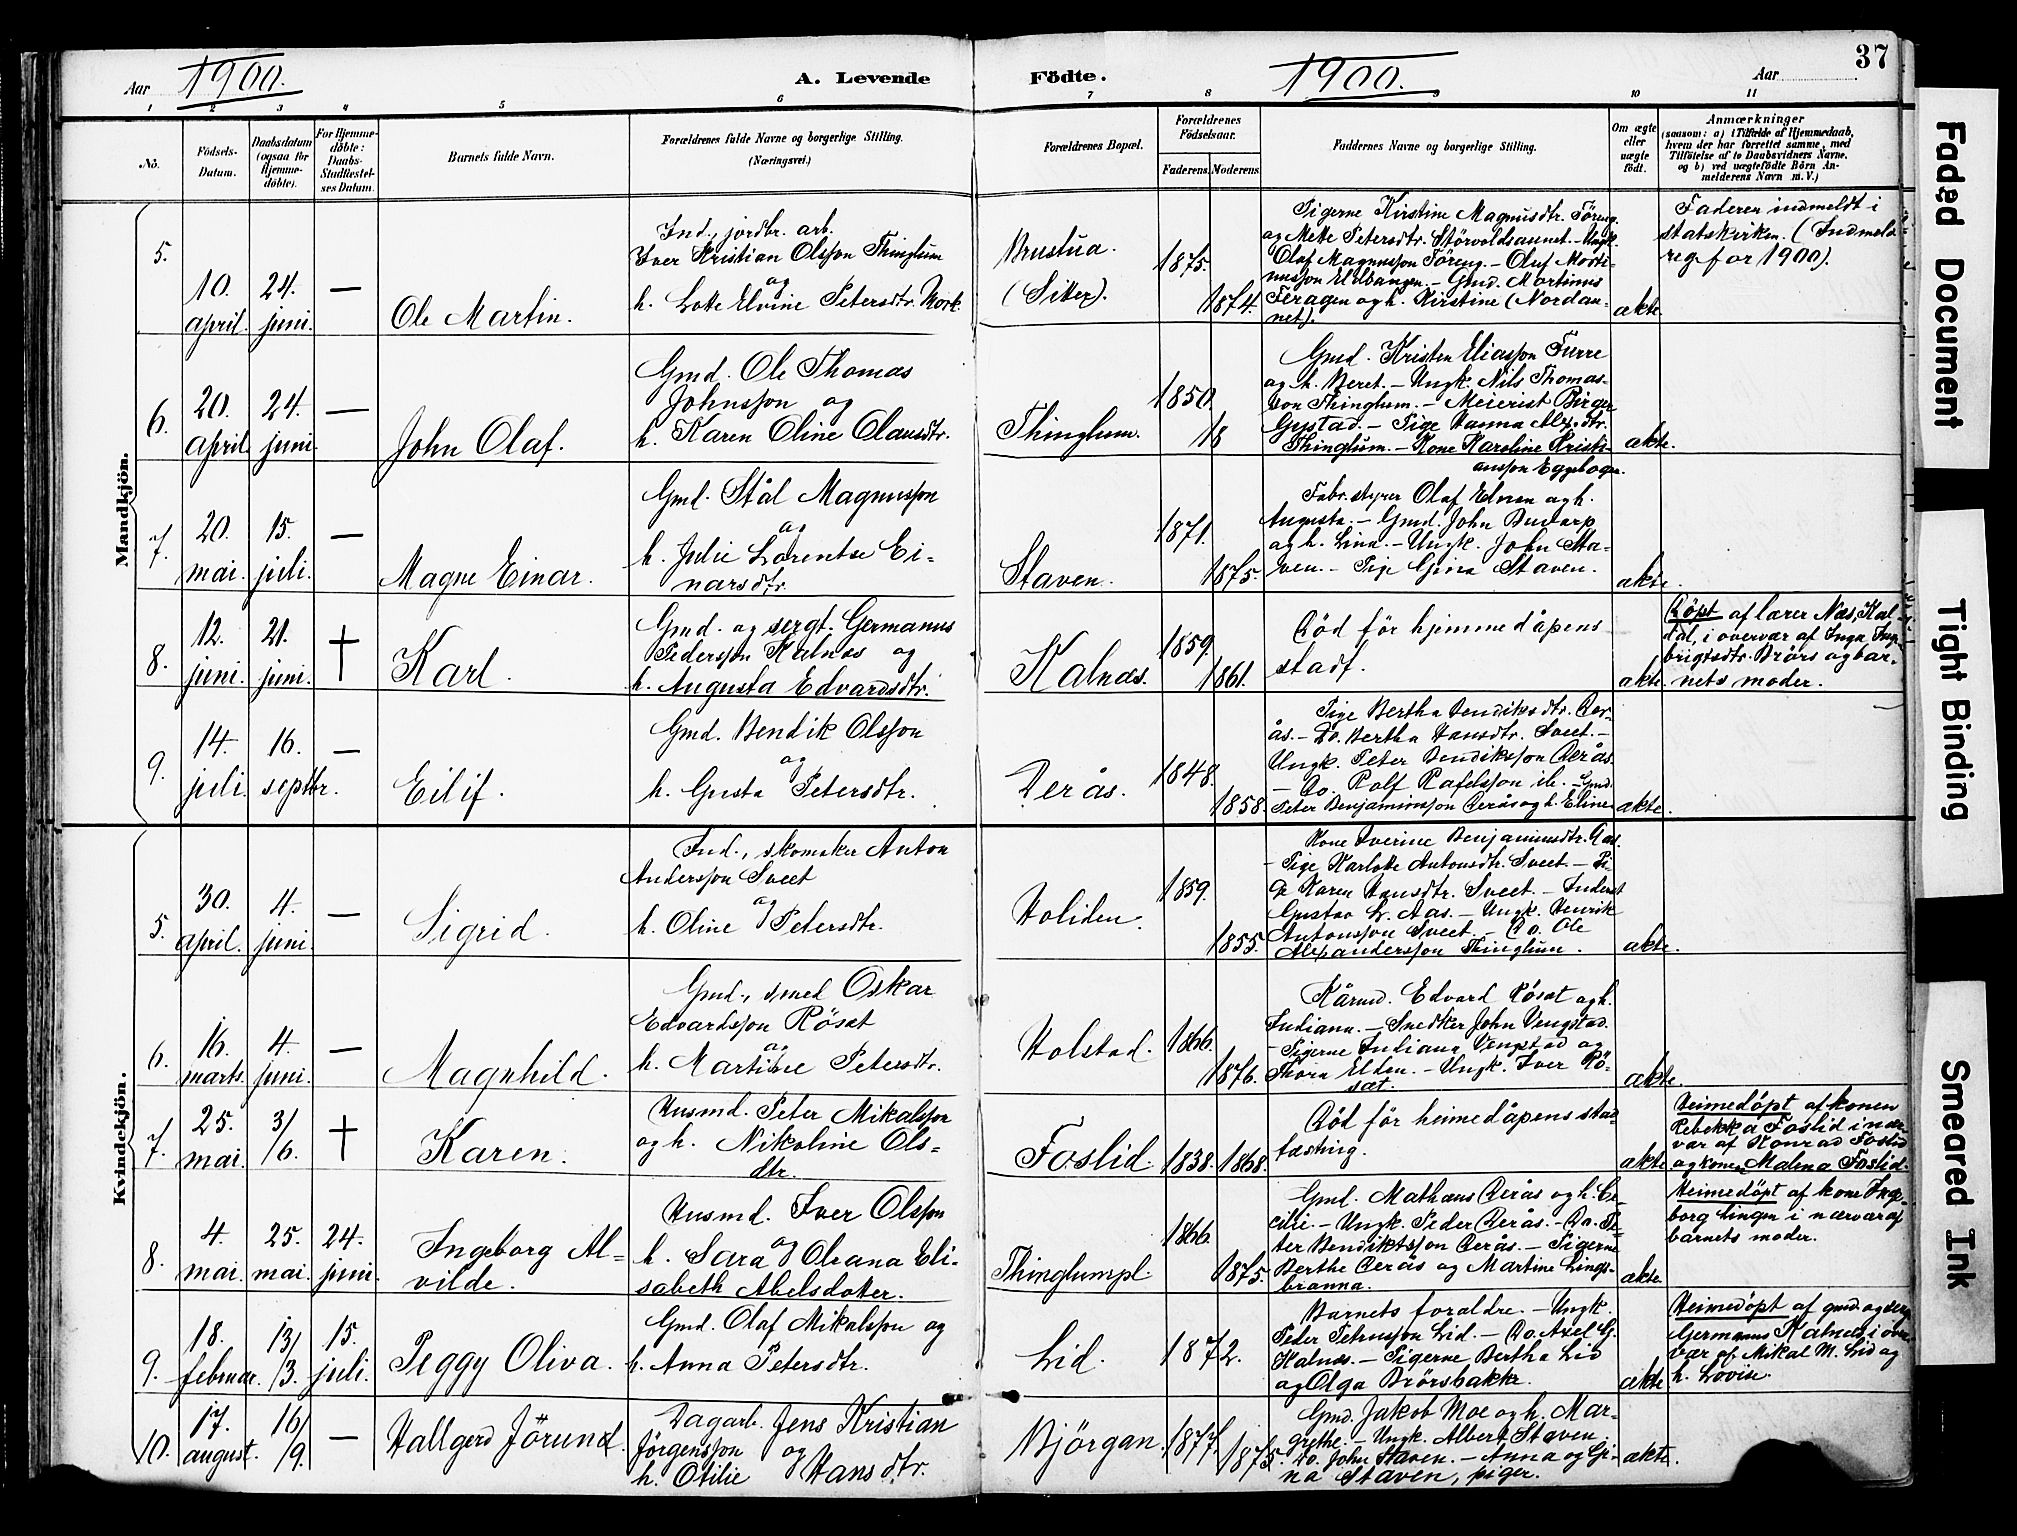 Aar 1900.
A. Levende Födte.
1900.
Aar
37
1 2 3 4 5 6 7 8 9 10 11
No.
Födsels-
Datum.
Daabsdatum
(ogsaa for
Hjemme-
döbte).
For Hjemme-
döbte:
Daabs-
Stadfestel-
ses Datum.
Barnets fulde Navn.
Forældrenes fulde Navne og borgerlige Stilling.
(Næringsvei.)
Forældrenes Bopæl.
Forældrenes
Födselsaar.
Faderens. Moderens
Faddernes Navne og borgerlige Stilling.
Om ægte
eller
uægte
födt.
Anmærkninger
(saasom: a) i Tilfælde af Hjemmedaab,
hvem der har forrettet samme, med
Tilföielse af to Daabsvidners Navne,
og b) ved uægtefödte Börn An-
melderens Navn m. V.)
Mandkjön.
5.
10.
april.
24.
juni.
—
Ole Martin.
Ind., jordbr. arb.
Iver Kristian Olsson Thinglum
og
h. Lotte Elvine Petersdtr. Mork.
(Sitter).
1875.
1874.
Pigerne Kirstine Magnusdtr. Föreng
og Mette Petersdtr. - Ungk.
Olaf Magnusson Föreng. - Oluf
Gmd. Martinus
Feragen og h. Kirstine (Nordan-
net).
ækte.
Faderen indmeldt i
statskirken. (Indmeld.
reg. for 1900).
6.
20.
april.
24.
juni.
—
John Olaf.
Gmd. Ole Thomas
Johnsson og
h. Karen Oline Olausdtr.
Thinglum.
1850.
18
Gmd. Kristen Eliasson Furre
og h. Beret. - Ungk. Nils Thomas-
son Thinglum. - Meierist Birger
Gystad. - Pige Hanna Alexdtr.
Thinglum. - Kone Karoline Kristi-
ansson Eggebogn.
ækte.
7.
20.
mai.
15.
juli.
—
Magne Einar.
Gmd. Stål Magnusson
og
h. Julie Lorentse Ei-
narsdtr.
Staven.
1871.
1875.
Fabr.styrer Olaf Elnan og h.
Augusta. - Gmd. John
og h. Lina. - Ungk. John Sta-
ven. - Pige Gina Staven.
ækte.
8.
12.
juni.
21.
juni.
†
Karl.
Gmd. og sergt. Germanus
Pedersson Kalnæs og
h. Augusta Edvardsdtr.
Kalnæs.
1859.
1861.
Död för hjemmedåpens
stadf.
ækte.
Döpt af lærer Næs, Kal-
dal, i overvær af Inga Inge-
brigtsdtr. Brörs og bar-
nets moder.
9.
14.
juli.
16.
septbr.
—
Eilif.
Gmd. Bendik Olsson
og
h. Gusta Petersdtr.
Derås.
1848.
1858.
Pige Bertha Bendiksdtr. Der-
ås. - Do. Bertha Hansdtr. Sveet. -
Ungk. Peter Bendiksson Derås.
- Do. Rolf Rafelsson ib. - Gmd.
Peter Benjaminsson Derås og h. Eline.
ækte.
Kvindekjön.
5.
30.
april.
4.
juni.
—
Sigrid.
Ind., skomaker Anton
Andersson Sveet
og
h. Oline Petersdtr.
Holiden.
1859.
1855.
Kone Iverine Benjaminsdtr. Aas.
- Pige Karlotte Antonsdtr. Sveet. - Pi-
ge Karen Hansdtr. Sveet. - Inderst
Gustav L. Aas. - Ungk. Henrik
Antonsson Sveet. - Do. Ole
Alexandersson Thinglum.
ækte.
6.
16.
marts.
4.
juni.
—
Magnhild.
Gmd., smed Oskar
Edvardsson Rösæt
og
h. Martine Petersdtr.
Holstad.
1866.
1876.
Kårmd. Edvard Rösæt og h.
Indiana. - Snedker John Vengstad.
- Pigerne Juliana Vengstad og
Thora Elden. - Ungk. Iver Rö-
sæt.
ækte.
7.
25.
mai.
3/6.
†
Karen.
Husmd. Peter Mikalsson
og h. Nikoline Ols-
dtr.
Foslid.
1838.
1868.
Död för heimedåpens stad-
fæstning.
ækte
Heimedöpt af konen
Rebekka Foslid i nær-
vær af Konrad Foslid
og konen Malena Foslid.
8.
4.
mai.
25.
mai.
24.
juni.
Ingeborg Al-
vilde.
Husmd. Iver Olsson
og
h. Sara Oleana Eli-
sabeth Abelsdotter.
Thinglumpl.
1866.
1875.
Gmd. Mathæus Derås og h. Ce-
cilie. - Ungk. Peder Derås. - Do. Pe-
ter Bendiktsson Derås. - Pigerne
Berthe Derås og Martine Lings-
branna.
ækte.
Heimedöpt af kone Inge-
borg Lingen i nærvær af
barnets moder.
9.
18.
februar.
13/3.
15.
juli.
Peggy Oliva.
Gmd. Olaf Mikalsson og
h. Anna Petersdtr.
Lid.
1872.
Barnets foraldre. - Ungk.
Peder Petersson Lid. - Do. Axel G.
Kalnæs. - Pigerne Bertha Lid
og Olga Brörsbakke.
ækte.
Heimedöpt af gmd. og serg.
Germanus Kalnes i over-
vær af Mikal M. Lid og
h. Lovise.
10.
17.
august.
16/9.
—
Hallgerd Jörund.
Dagarb. Jens Kristian
Jörgensson og
h. Otilie Hansdtr.
Björgan.
1877.
1875.
Gmd. Jakob Moe og h. Mar-
grethe. - Ungk. Albert Staven.
Do. John Staven. - Anna og Gi-
na Staven, piger.
ækte.
Faded Document
Tight Binding
Smeared Ink